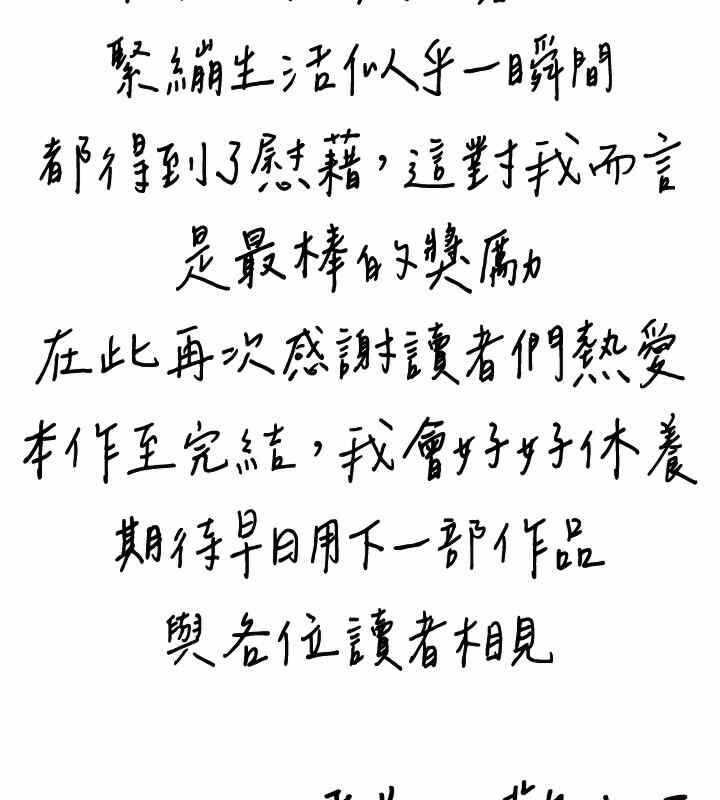 緊繃生活似乎一瞬間
都得到了慰藉，這對我而言
是最棒的獎勵
在此再次感謝讀者們熱愛
本作至完結，我會好好休養
期待早日用下一部作品
與各位讀者相見